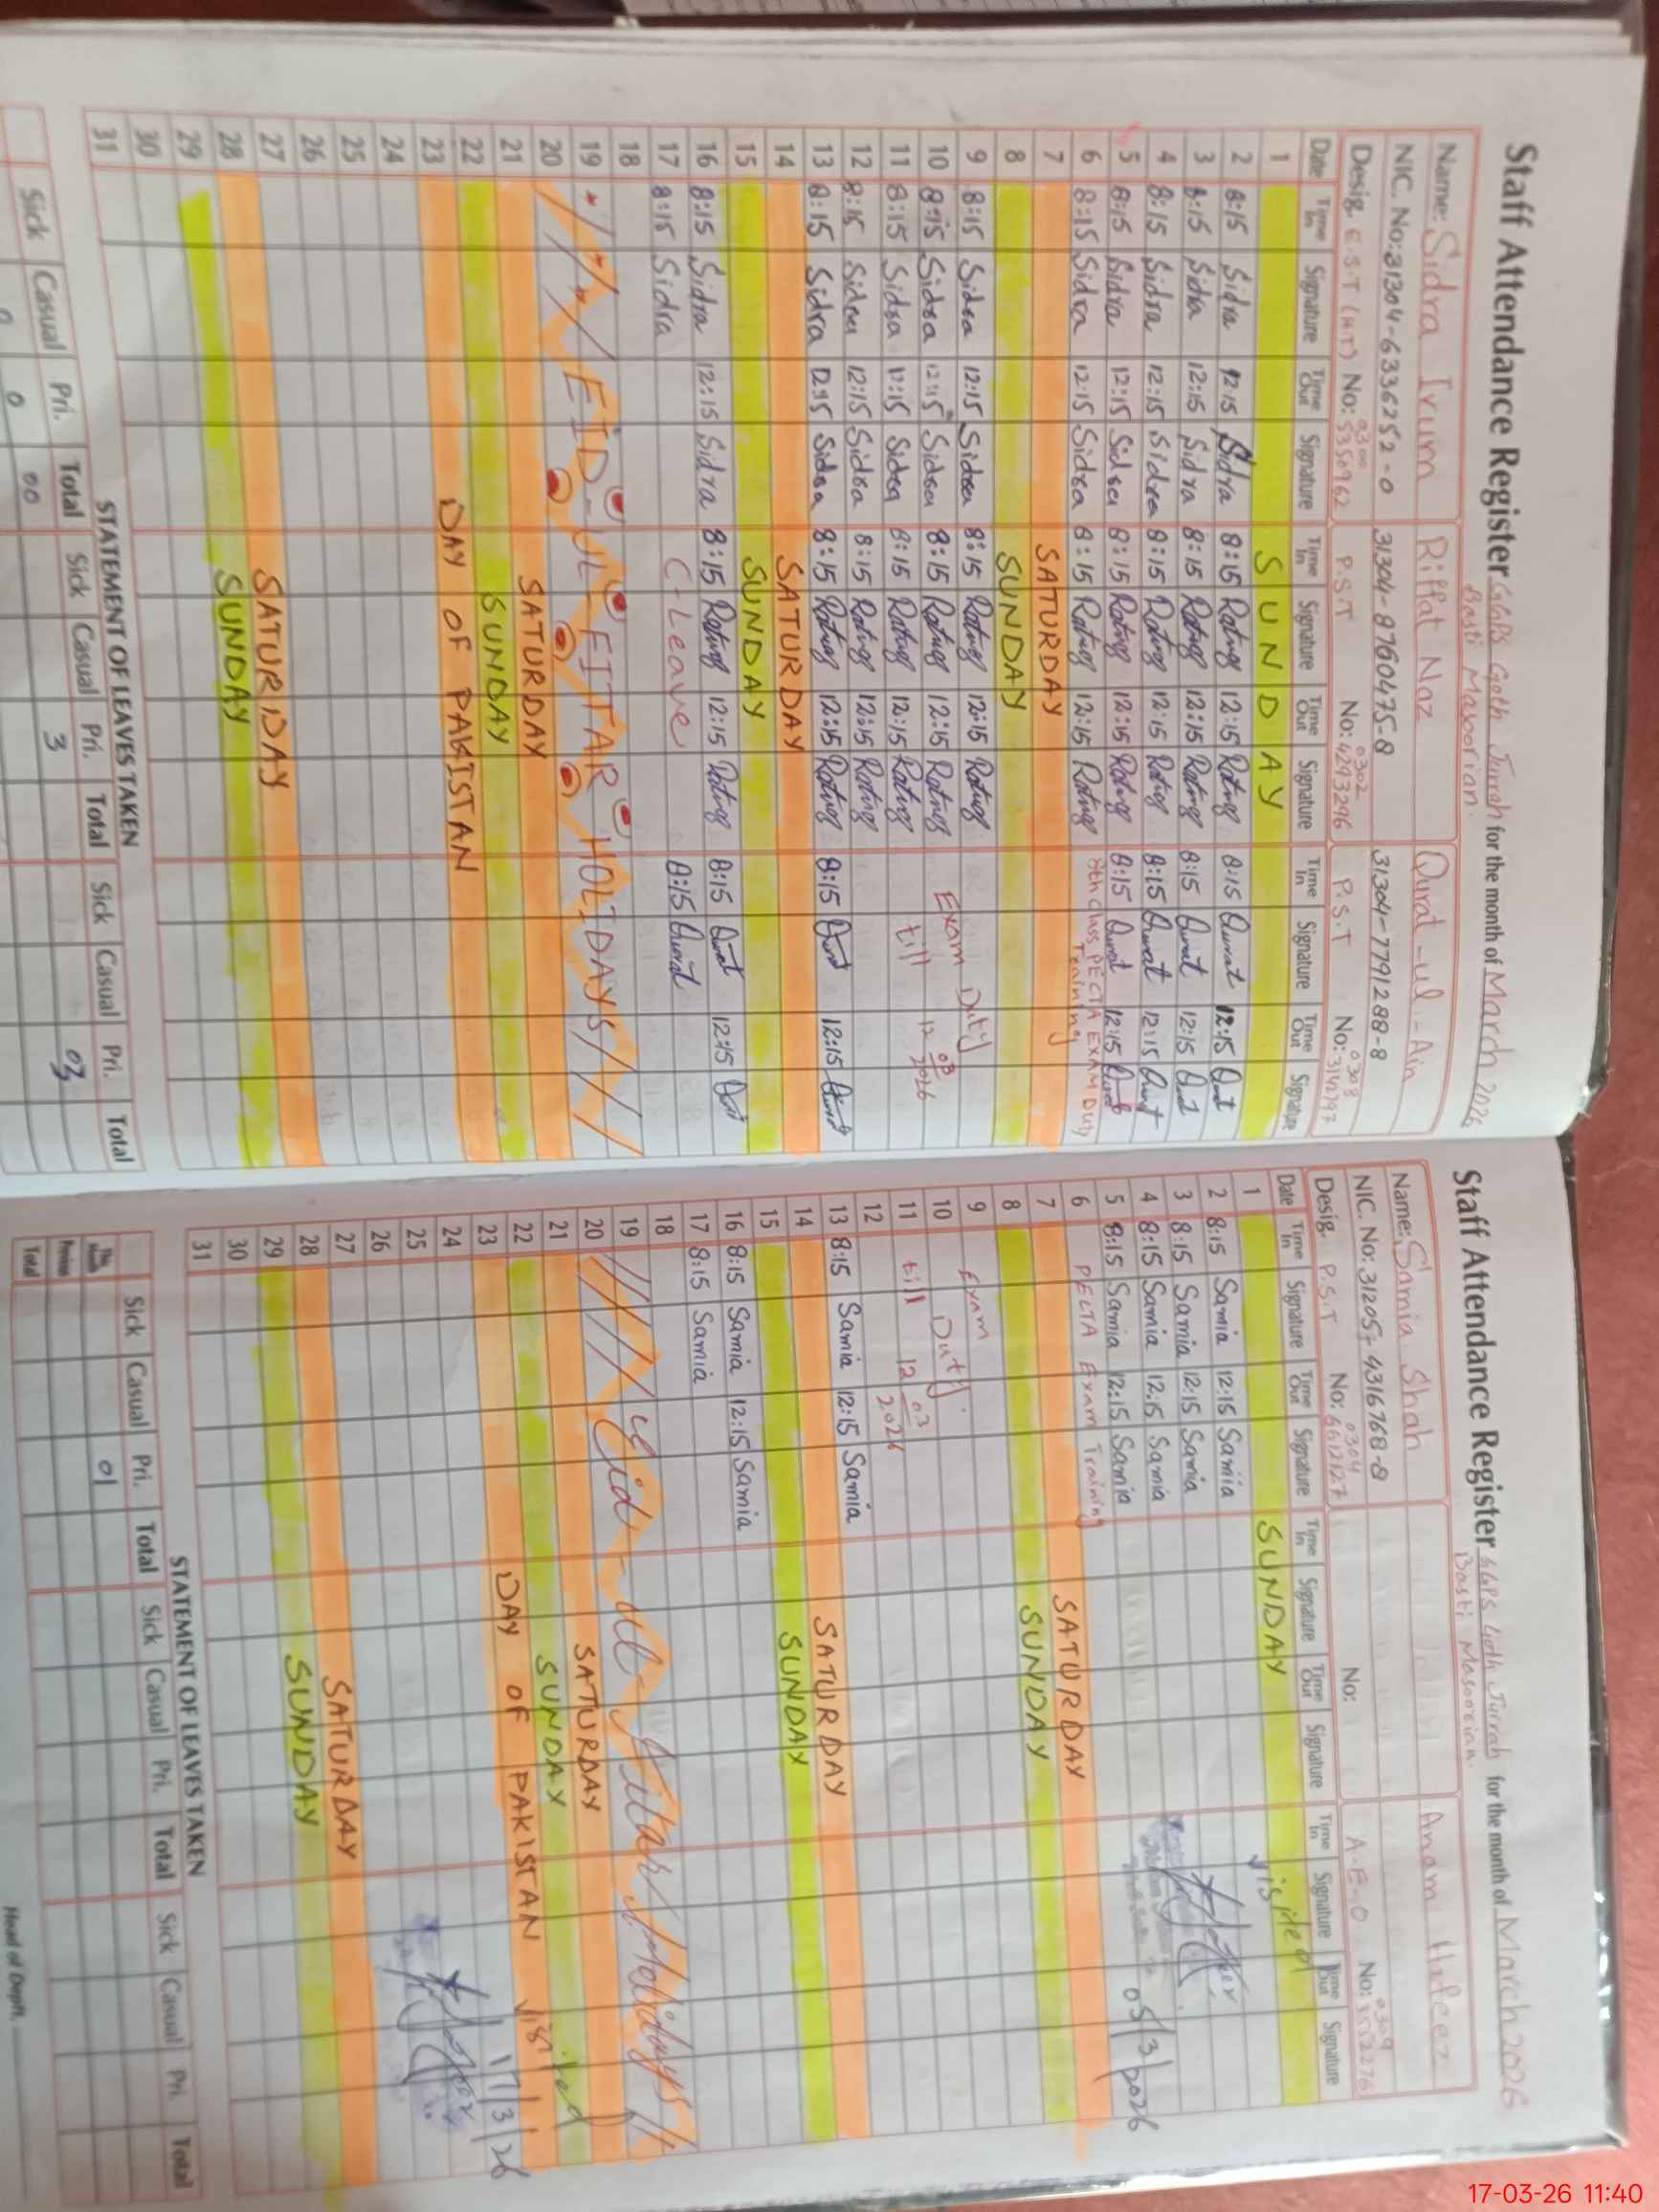 Staff Attendance Register GGPS Goth Jurrah for the month of March 2026
Basti Masoorian.
Name: Sidra Irum Riffat Naz Qurat-ul-Ain
NIC. No: 31304-6336252-0 31304-8760475-8 31304-7791288-8
Desig. E.S.T (H.T) No: 0300 5350962 P.S.T No: 0302 4293296 P.S.T No: 0308
Date Time In Signature Time Out Signature Time In Signature Time Out Signature Time In Signature Time Out Signature
1 SUNDAY
2 8:15 Sidra 12:15 Sidra 8:15 12:15 8:15 Qurat 12:15
3 8:15 Sidra 12:15 Sidra 8:15 12:15 8:15 Qurat 12:15
4 8:15 Sidra 12:15 Sidra 8:15 12:15 8:15 Qurat 12:15
5 8:15 Sidra 12:15 Sidra 8:15 12:15 8:15 Qurat 12:15
6 8:15 Sidra 12:15 Sidra 8:15 12:15 class PECTA EXAM Duty Training
7 SATURDAY
8 SUNDAY
9 8:15 Sidra 12:15 Sidra 8:15 12:15 Exam Duty
10 8:15 Sidra 12:15 Sidra 8:15 12:15 till 12 03 2026
11 8:15 Sidra 12:15 Sidra 8:15 12:15
12 8:15 Sidra 12:15 Sidra 8:15 12:15
13 8:15 Sidra Sidra 8:15 12:15 8:15 12:15
14 SATURDAY
15 SUNDAY
16 8:15 Sidra 12:15 Sidra 8:15 12:15 8:15 12:15
17 8:15 Sidra C-Leave 8:15 Qurat
18
19 EID-UL-FITAR HOLIDAYS
20
21 SATURDAY
22 SUNDAY
23 DAY OF PAKISTAN
24
25
26
27 SATURDAY
28 SUNDAY
29
30
31
STATEMENT OF LEAVES TAKEN
Sick Casual Pri. Total Sick Casual Pri. Total Sick Casual Pri. Total
0 00 3 03
Staff Attendance Register GGPS Goth Jurrah for the month of March 2026
Basti Masoorian.
Name: Samia Shah Anam Hafeez
NIC. No: 31205-4316768-8
Desig. P.S.T No: 0304 6612127 No: A.E.O No: 0309
Date Time In Signature Time Out Signature Time In Signature Time Out Signature Time In Signature Time Out Signature
1 SUNDAY visited
2 8:15 Samia 12:15 Samia
3 8:15 Samia 12:15 Samia
4 8:15 Samia 12:15 Samia
5 8:15 Samia 12:15 Samia 05/3/2026
6 PECTA Exam Training
7 SATURDAY
8 SUNDAY
9 Exam Duty
10
11 till 12 03 2026
12
13 8:15 Samia 12:15 Samia
14 SATURDAY
15 SUNDAY
16 8:15 Samia 12:15 Samia
17 8:15 Samia
18
19 Eid-ul-Fitar Holidays
20
21 SATURDAY
22 SUNDAY visited
23 DAY OF PAKISTAN 17/3/26
24
25
26
27 SATURDAY
28 SUNDAY
29
30
31
STATEMENT OF LEAVES TAKEN
Sick Casual Pri. Total Sick Casual Pri. Total Sick Casual Pri. Total
01
Previous
Total
Head of Deptt.
17-03-26 11:40